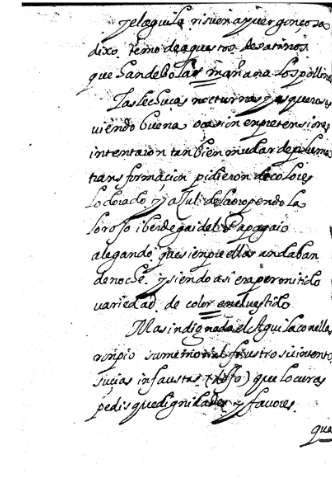 y el aguila risueña y vergonçosa
dixo temo de aquestos desatinos
que han de bolar mañana los pollinos
Las lechuças nocturnas y asquerosas
viendo buena ocasion en pretensiones
intentaron tanbien mudar de pluma
transformacion pidieron de colores
lo dorado y açul de la oropendola
lo roso i berdegai del Papagaio
alegando que sienpre ellas andaban
de noche y siendo asi era permitido
variedad de color en el vestido
Mas indignada el Aguila con ellas
ronpio su memorial frustro su intento
sucias infaustas (dixo) que locuras
pedis que dignidades y favores
que